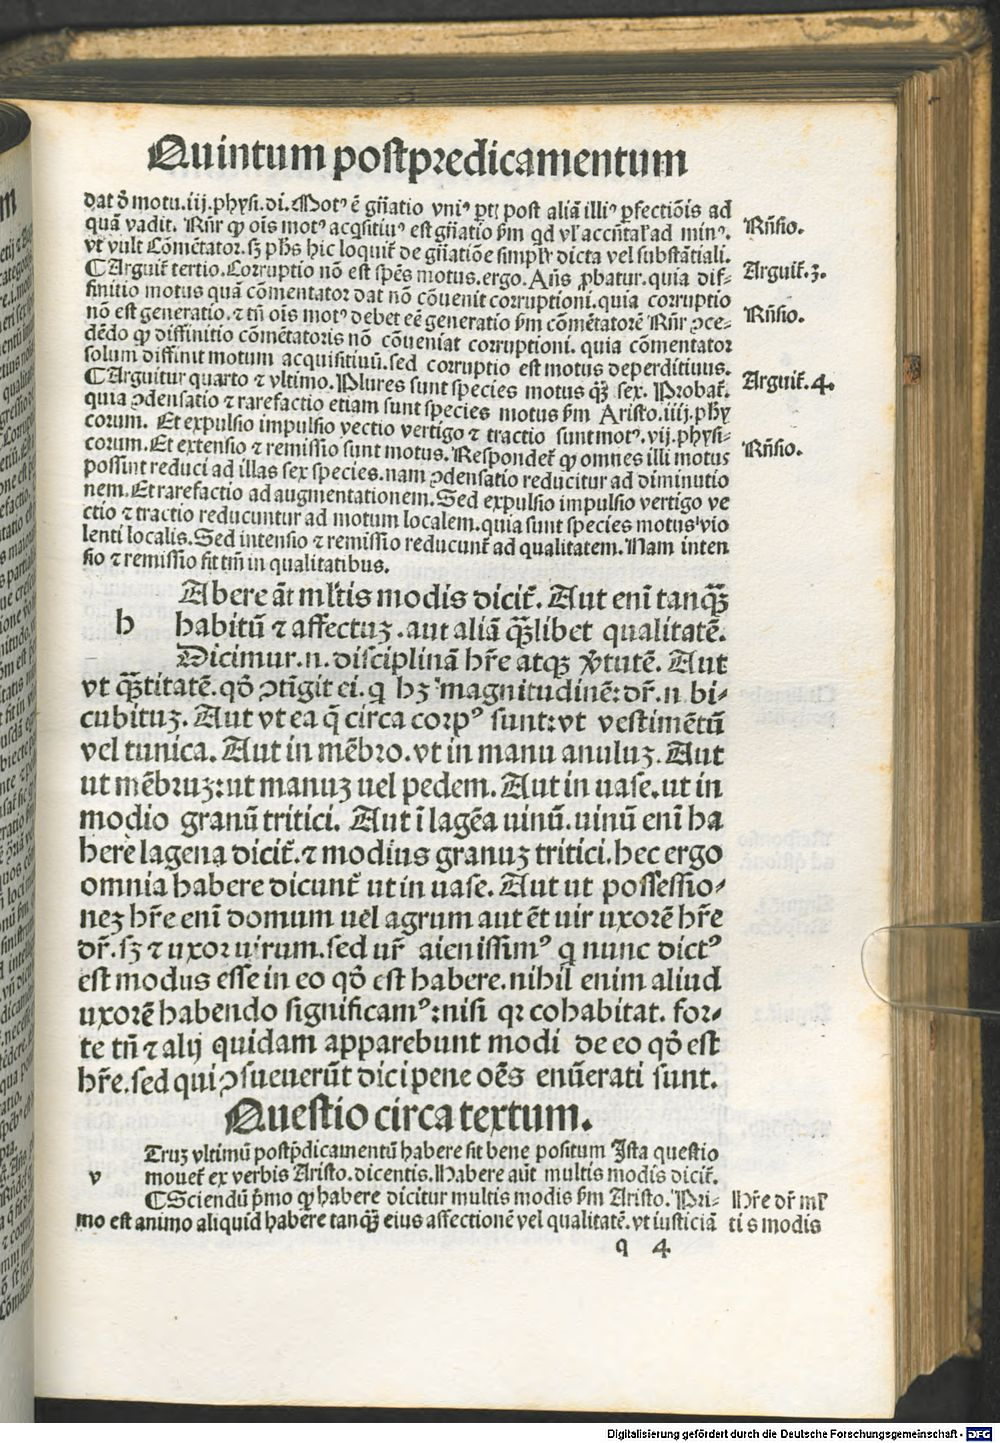 Quintum postpredicamentum
dat ō motu.iij.phyſi.di.Motꝰ ē gn̄atio vniꝰ ꝑtꝭ poſt aliā illiꝰ ꝑfectiōis ad
quā vadit. Rn̄r ꝙ oīs motꝰ acqſitiuꝰ eſt gn̄atio ẜm qd vl' accn̄tal' ad minꝰ.
Rn̄ſio.
vt vult Cōmētator.ſꝫ phs hic loquit̄ de gn̄atiōe simplr̄ dicta vel ſubſtātiali.
⸿Arguit̄ tertio.Corruptio nō eſt ſpēs motus.ergo. Añs ꝓbatur.quia dif⸗
Arguit̄.3.
finitio motus quā cōmentator dat nō cōuenit corruptioni.quia corruptio
nō eſt generatio.⁊ tn̄ oīs motꝰ debet eē generatio ẜm cōmētatorē Rn̄r ꝯce⸗
Rn̄ſio.
dēdo ꝙ diffinitio cōmētatoris nō cōueniat corruptioni. quia cōmentator
ſolum diffinit motum acquiſitiuū.ſed corruptio eſt motus deperditiuus.
⸿Arguitur quarto ⁊ vltimo.Plures ſunt ſpecies motus qꝫ̄ ſex. Probat̄.
Arguit̄.4.
quia ꝯdenſatio ⁊ rarefactio etiam ſunt ſpecies motus ẜm Ariſto.iiij.phy
corum. Et expulſio impulſio vectio vertigo ⁊ tractio ſunt motꝰ.vij.phyſi⸗
corum.Et extenſio ⁊ remiſſio ſunt motus.Reſpondet̄ ꝙ omnes illi motus
Rn̄ſio.
poſſint reduci ad illas ſex ſpecies.nam ꝯdenſatio reducitur ad diminutio
nem.Et rarefactio ad augmentationem.Sed expulſio impulſio vertigo ve
ctio ⁊ tractio reducuntur ad motum localem.quia ſunt ſpecies motus vio
lenti localis.Sed intenſio ⁊ remiſſio reducunt̄ ad qualitatem.Nam inten
ſio ⁊ remiſſio fit tm̄ in qualitatibus.
Abere āt ml'tis modis dicit̄. Aut eni tanqꝫ̄
h habitū ⁊ affectuꝫ.aut aliā qꝫ̄libet qualitatē.
Dicimur.n. diſciplinā hr̄e atqꝫ v̓tutē. Aut
vt qꝫ̄titatē. qō ꝯtīgit ei.q hꝫ magnitudinē: dr̄.n bi⸗
cubituꝫ. Aut vt ea q̄ circa corpꝰ ſunt:vt veſtimētū
vel tunica. Aut in mēbro.vt in manu anuluꝫ. Aut
ut mēbruꝫ:ut manuꝫ uel pedem. Aut in uaſe.ut in
modio granū tritici. Aut ī lagēa uinū.uinū enī ha
bere lagena dicit̄.⁊ modius granuꝫ tritici.hec ergo
omnia habere dicunt̄ ut in uaſe. Aut ut poſſeſſio⸗
neꝫ hr̄e enī domum uel agrum aut ēt uir uxorē hr̄e
dr̄.ſꝫ ⁊ uxor uirum.ſed ur̄ aieniſſimꝰ q nunc dictꝰ
eſt modus eſſe in eo qō eſt habere.nihil enim aliud
uxorē habendo ſignificamꝰ:niſi qꝛ cohabitat. for⸗
te tn̄ ⁊ alij quidam apparebunt modi de eo qō eſt
hr̄e.ſed qui ꝯſueuerūt dici pene oēs enūerati ſunt.
Queſtio circa textum.
Truꝫ vltimū poſtp̄dicamentū habere ſit bene poſitum Iſta queſtio
v mouet̄ ex verbis Ariſto.dicentis.Habere aūt multis modis dicit̄.
⸿Sciendū p̄mo ꝙ habere dicitur multis modis ẜm Ariſto. Pri⸗
Hr̄e dr̄ ml'
mo eſt animo aliquid habere tanqꝫ̄ eius affectionē vel qualitatē.vt iuſticiā
tis modis
q 4
Digitalisierung gefördert durch die Deutsche Forschungsgemeinschaft - DFG